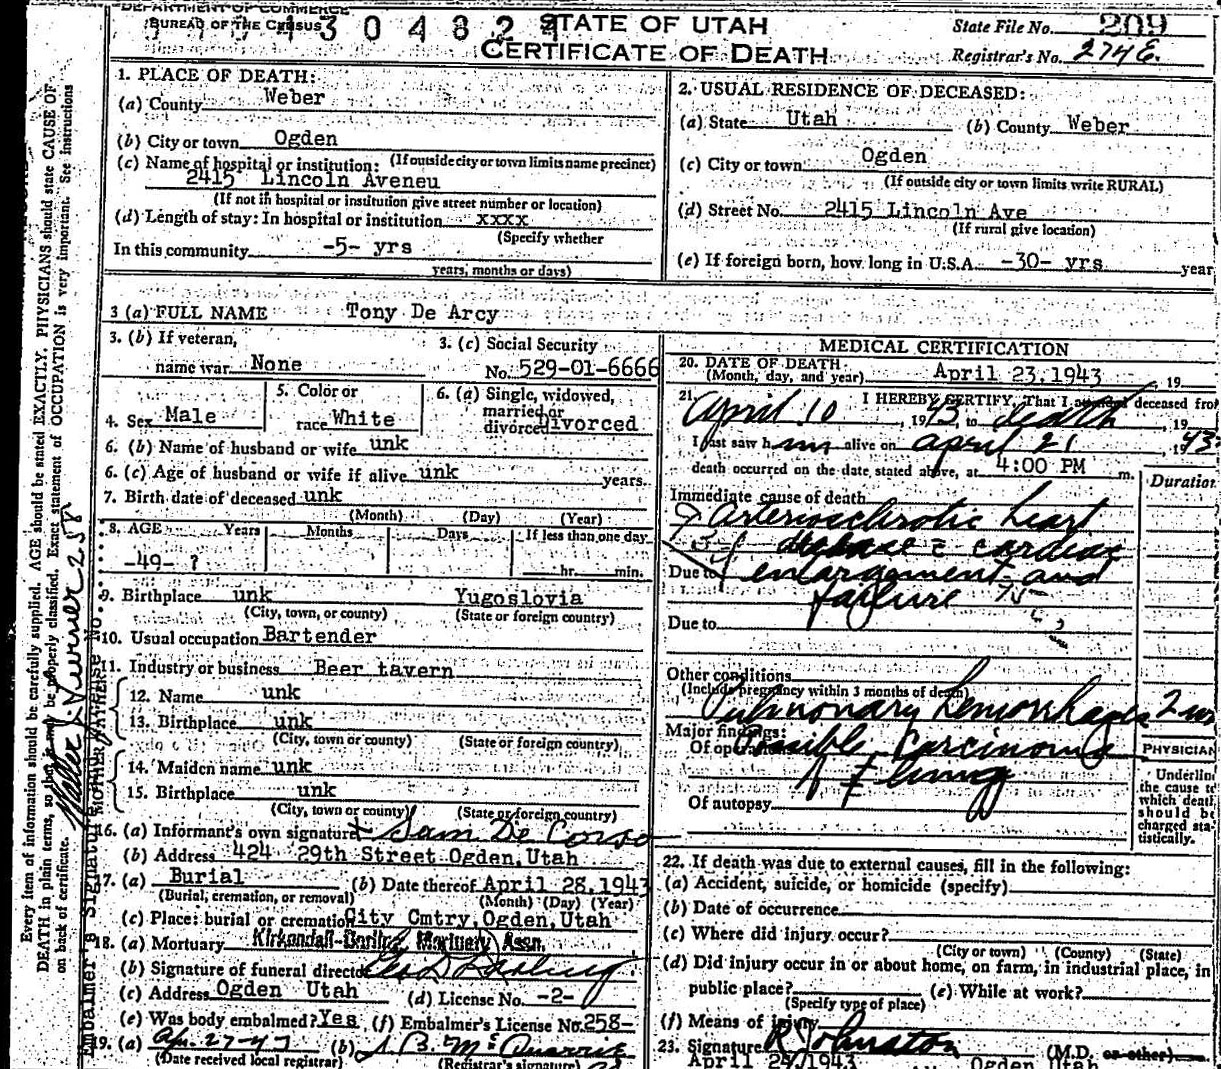 DEPARTMENT OF COMMERCE
BUREAU OF THE CENSUS
304824
STATE OF UTAH
CERTIFICATE OF DEATH
State File No. 209
Registrar's No. 274 E.
1. PLACE OF DEATH:
(a) County Weber
(b) City or town Ogden
(If outside city or town limits name precinct)
(c) Name of hospital or institution:
2415 Lincoln Aveneu
(If not in hospital or institution give street number or location)
(d) Length of stay: In hospital or institution xxxx
(Specify whether
In this community -5- yrs
years, months or days)
2. USUAL RESIDENCE OF DECEASED:
(a) State Utah (b) County Weber
(c) City or town Ogden
(If outside city or town limits write RURAL)
(d) Street No. 2415 Lincoln Ave
(If rural give location)
(e) If foreign born, how long in U.S.A. -30- yrs year
3 (a) FULL NAME Tony De Arcy
3. (b) If veteran,
name war None
3. (c) Social Security
No. 529-01-6666
4. Sex Male
5. Color or
race White
6. (a) Single, widowed,
married or
divorced Divorced
6. (b) Name of husband or wife unk
6. (c) Age of husband or wife if alive unk years.
7. Birth date of deceased unk
(Month) (Day) (Year)
8. AGE Years Months Days If less than one day
-49- ? hr. min.
9. Birthplace unk Yugoslovia
(City, town, or county) (State or foreign country)
10. Usual occupation Bartender
11. Industry or business Beer tavern
FATHER
12. Name unk
13. Birthplace unk
(City, town or county) (State or foreign country)
MOTHER
14. Maiden name unk
15. Birthplace unk
(City, town or county) (State or foreign country)
16. (a) Informant's own signature Sam De Corso
(b) Address 424 29th Street Ogden, Utah
17. (a) Burial (b) Date thereof April 28, 1943
(Burial, cremation, or removal) (Month) (Day) (Year)
(c) Place: burial or cremation City Cmtry, Ogden, Utah
18. (a) Mortuary Kirkendall-Darling Mortuary Assn.
(b) Signature of funeral director Geo D Darling
(c) Address Ogden Utah (d) License No. -2-
(e) Was body embalmed? Yes (f) Embalmer's License No. 258-
19. (a) Apr. 27-43 (b)
(Date received local registrar) (Registrar's signature)
MEDICAL CERTIFICATION
20. DATE OF DEATH
(Month, day, and year) April 23, 1943 , 19
21. I HEREBY CERTIFY, That I attended deceased from
April 10 , 1943, to death , 19
I last saw h im alive on April 21 , 1943
death occurred on the date stated above, at 4:00 PM m.
Duration
Immediate cause of death
Arteriosclerotic heart
disease c cardiac
Due to enlargement and
failure
Due to
Other conditions
(Include pregnancy within 3 months of death)
Pulmonary hemorrhages 2 wks
Major findings:
Of operations Possible Carcinoma
of lung
Of autopsy
PHYSICIAN
Underline
the cause to
which death
should be
charged sta-
tistically.
22. If death was due to external causes, fill in the following:
(a) Accident, suicide, or homicide (specify)
(b) Date of occurrence
(c) Where did injury occur?
(City or town) (County) (State)
(d) Did injury occur in or about home, on farm, in industrial place, in
public place? (e) While at work?
(Specify type of place)
(f) Means of injury
23. Signature R Johnston (M.D. or other)
April 25/1943 Ogden Utah
Every item of information should be carefully supplied. AGE should be stated EXACTLY. PHYSICIANS should state CAUSE OF
DEATH in plain terms, so that it may be properly classified. Exact statement of OCCUPATION is very important. See instructions
on back of certificate.
Embalmer's Signature No. 258